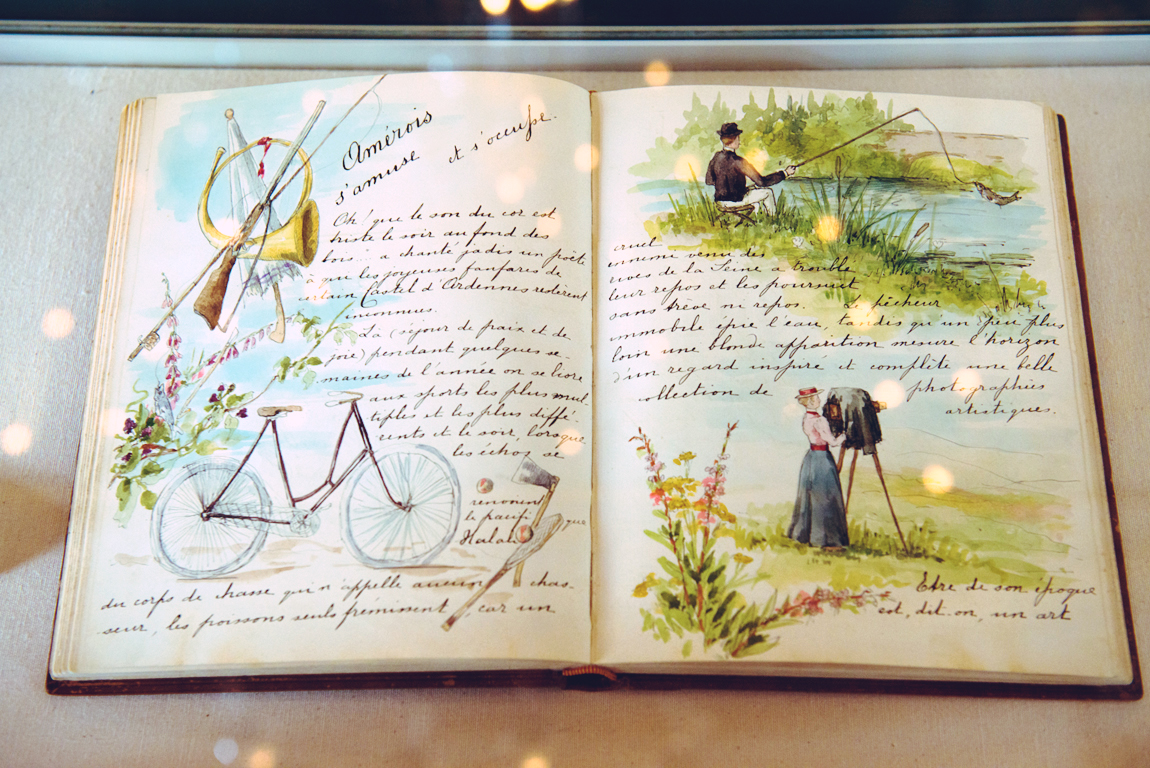 Amérois
s'amuse et s'occupe.
Oh! que le son du cor est
triste le soir au fond des
bois... a chanté jadis un poète
à qui les joyeuses fanfares de
certain Castel d'Ardennes restèrent
inconnues.
Là (séjour de paix et de
joie) pendant quelques se-
maines de l'année on se livre
aux sports les plus mul
tiples et les plus diffé-
rents et le soir, lorsque
les échos se
renvoient
le pacifi que
Halali
du corps de chasse qui n'appelle aucun chas-
seur, les poissons seuls frémissent, car un
cruel
ennemi venu des
rives de la Seine a troublé
leur repos et les poursuit
sans trêve ni repos. Le pêcheur
immobile épie l'eau, tandis qu'un peu plus
loin une blonde apparition mesure l'horizon
d'un regard inspiré et complète une belle
collection de photographies
artistiques.
Etre de son époque
est, dit-on, un art